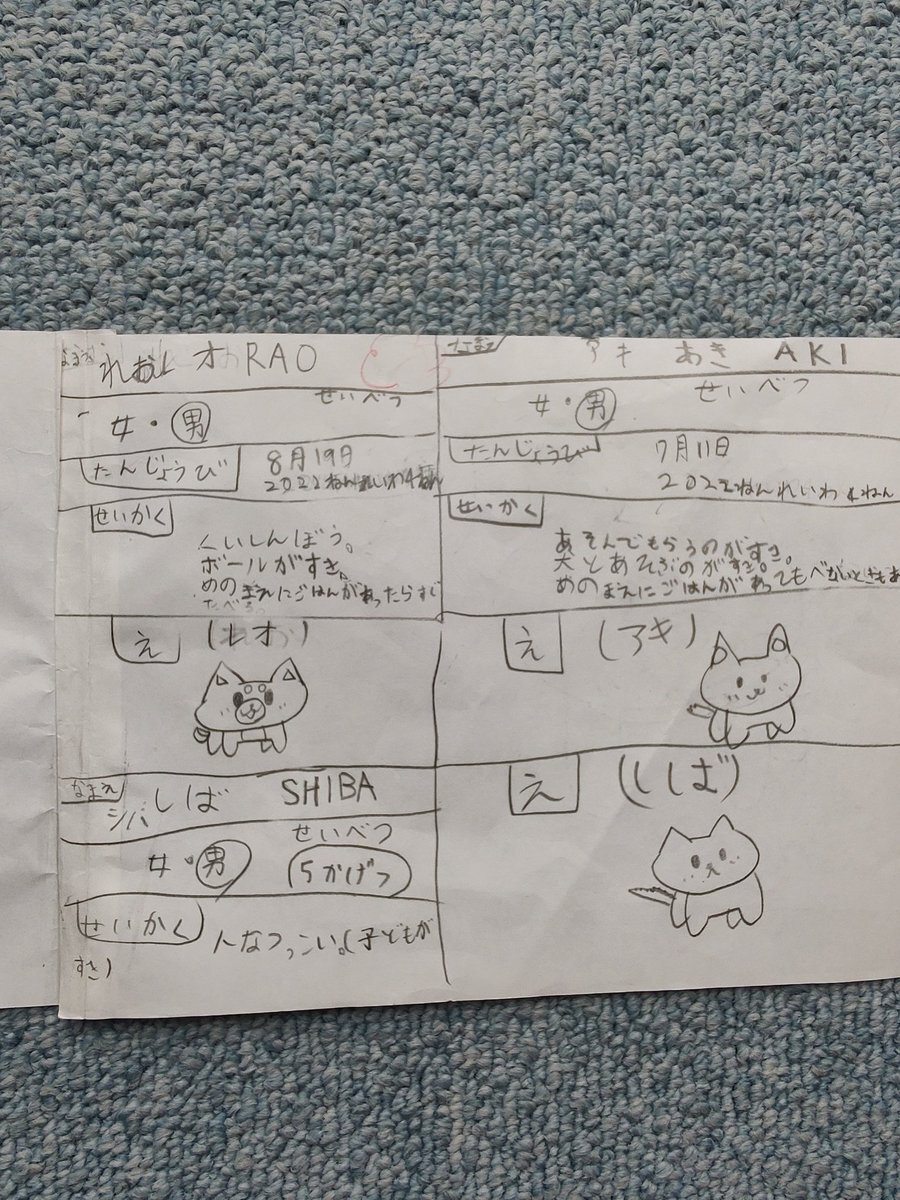 れお オ RAO
せいべつ
女・男
たんじょうび
8月19日
せいかく
くいしんぼう。
ボールがすき。
めのまえにごはんがあったらすぐ
たべる。
え (レオ)
なまえ
シバ しば SHIBA
せいべつ
女・男 5かげつ
せいかく
人なつっこい。(子どもが
すき)
なまえ アキ あき AKI
せいべつ
女・男
たんじょうび
7月11日
2022ねんれいわ4ねん
せいかく
あそんでもらうのがすき。
犬とあそぶのがすき。
めのまえにごはんがあっても
え (アキ)
え (しば)